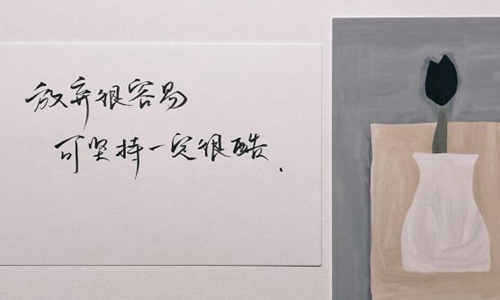 放弃很容易
可坚持一定很酷.